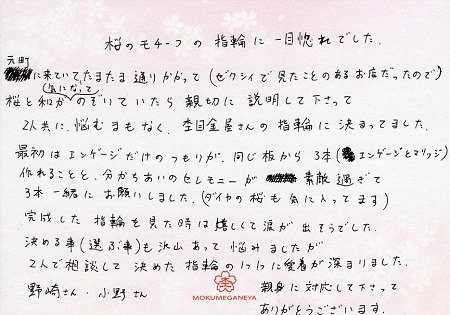 桜のモチーフの指輪に一目惚れでした。
元町
に来ていてたまたま通りがかって(ゼクシィで見たことのあるお店だったので)
桜と和が(気になって)のぞいていたら親切に説明して下さって
2人共に、悩むまもなく、杢目金屋さんの指輪に決まってました。
最初はエンゲージだけのつもりが、同じ板から3本(エンゲージとマリッジ)
作れることと、分かちあいのセレモニーが素敵過ぎて
3本一緒にお願いしました。(ダイヤの桜も気に入ってます)
完成した指輪を見た時は嬉しくて涙が出そうでした。
決める事(選ぶ事)も沢山あって悩みましたが
2人で相談して決めた指輪の1つ1つに愛着が深まりました。
野崎さん・小野さん 親身に対応して下さって
ありがとうございます。
MOKUMEGANEYA